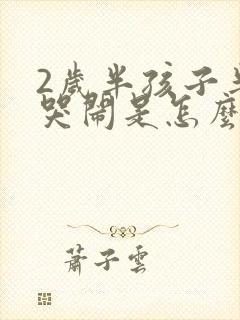 2歲半孩子
哭鬧是怎麼
蕭子雲